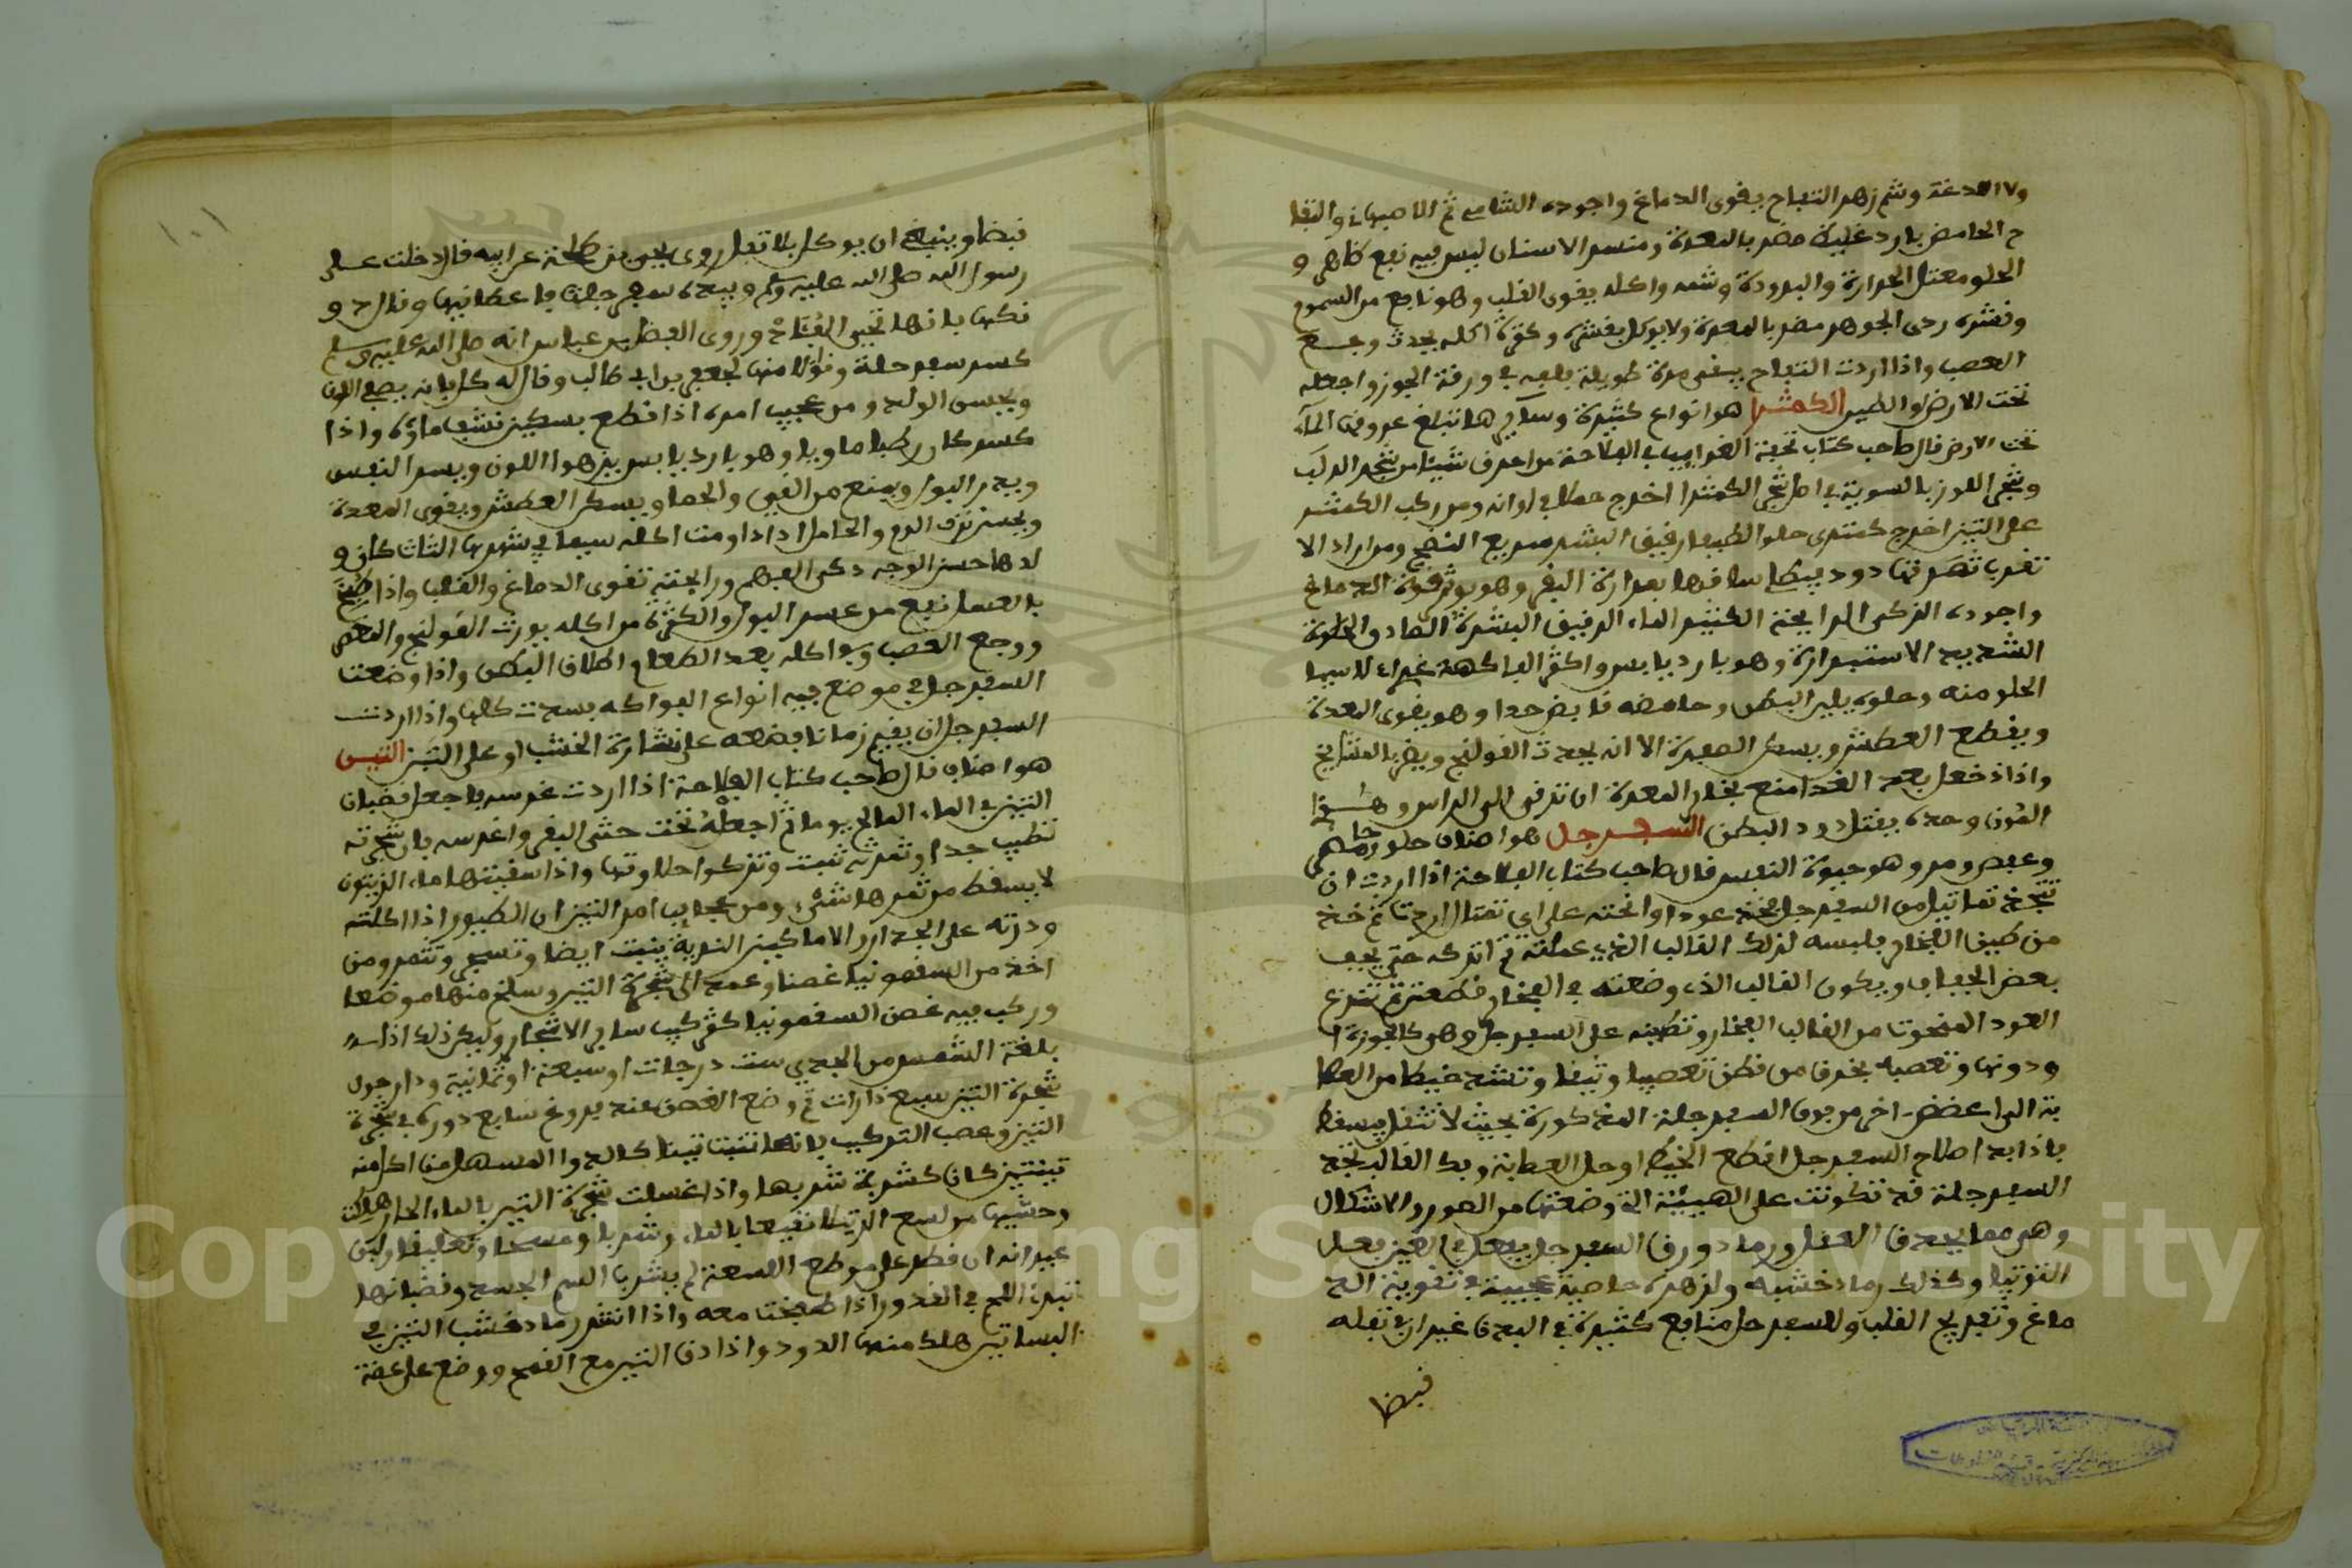 والادمغة وشم زهر التفاح يقوى الدماغ واجوده الشامي ثم الاصبهاني والتفا
ح الحامض بارد غليظ مضر بالمعدة ومنسر الانسان ليس فيه نفع ظاهر و
الحلو معتدل الحرارة والبرودة وشمه واكله يقوى القلب وهو نافع من السموم
وقشره ردى الجوهر مضر بالمعدة ولا يوكل بقشره وكثرة اكله يحدث وجع
العصب واذا اردت التفاح يبقى مدة طويلة فلفه في ورقة الجوز واجعله
تحت الارض او الطين الكمثرا هو انواع كثيرة وساير ها تبلغ عروقها الماء
تحت الارض قال صاحب كتاب تحفة الغرايب في الفلاحة من احرف شيئا من شجر الدلب
وشجر اللوز بالسوية في اصل شجر الكمثرا اخرج حملا في اوانه ومن ركب الكمثر
على التين اخرج كمثرى حلوا لطيفا رقيق البشر سريع النضج ومن اراد الا
تقرب ثمرتها دود فيطلي ساقها بمرارة البقر وهو يوثر قوة الدماغ
واجوده الزكى الرايحة الكثير الماء الرقيق البشرة الصادق الحلاوة
الشديد الاستدارة وهو بارد يابس واكثر الفاكهة غذاء لاسيما
الحلو منه وحلوه يلين البطن وحامضه قابض جدا وهو يقوى المعدة
ويقطع العطش ويسكن الصفرة الا انه يحدث القولنج ويضر بالمشايخ
واذا اخذ على بعد الغدا منع بخار المعدة ان ترقى الى الراس وهذا
اللون وحده يقتل دود البطن السفرجل هو اصناف حلو وحامض
وعفص ومر وهو حيوة النفس قال صاحب كتاب الفلاحة اذا اردت ان
تتخذ تماثيل من السفرجل فخذ عودا وانحته على اي تمثال اردت ثم خذ
من طين الفخار فلبسه لذلك القالب الذي عملته ثم اتركه حتى يجف
بعض الجفاف ويكون القالب الذى وضعته في الفخار قطعتين ثم تنزع
العود المنحوت من القالب الفخار وتطبقه على السفرجل وهو كالجوزة ا
ودونها وتعصبه بخرق من قطن تعصيبا وثيقا وتشد خيطا من العصا
بة الى اغصن اخر من فوق السفرجلة المذكورة بحيث لا تثقل فيسقط
فاذا بدا صلاح السفرجل اقطع الخيط او حل العصابة وفك القالب تجد
السفرجلة قد تكونت على الهيئة التي وضعتها من الصور والاشكال
وهو مما يحدق العقل ورماد ورق السفرجل يفعل في العين بعمل
التوتيا وكذلك رماد خشبه ولزهره خاصية عجيبة في تقوية الد
ماغ وتفريح القلب وللسفرجل منافع كثيرة في البدن غير ان في ثفله
قبضا
١٠١
قبضا وينبغي ان يوكل بلا ثفل روى يحيى بن طلحة عن ابيه قال دخلت على
رسول الله صلى الله عليه وسلم وبيده سفرجلة فاعطانيها وقال د و
نكها فانها تحيى الفؤاد وروى الفضل بن عباس انه صلى الله عليه وسلم
كسر سفرجلة وناول منها لجعفر بن ابي طالب وقال له كل فانه يصفي اللون
ويحسن الولد ومن عجيب امره اذا قطع بسكين نشف ماؤه واذا
كسر كان رطبا ماويا وهو بارد يابس يزهو اللون ويسر النفس
ويدر البول ويمنع من القيى والخما ويسكن العطش ويقوى المعدة
ويحبس نزف الدم والحامل اذا داومت اكله سيما في شهرها الثالث كان و
لدها حسن الوجه ذكى الفهم ورايحته تقوى الدماغ والقلب واذا طبخ
بالعسل نفع من عسر البول والكثرة من اكله يورث القولنج والمغص
ووجع العصب وسوا اكله بعد الطعام اطلاق البطن واذا وضعت
السفرجل في موضع فيه انواع الفواكه فسدت كلها واذا اردت
السفرجل ان يقيم زمانا فضعه على نشارة الخشب او على التبن التين
هو اصناف قال صاحب كتاب الفلاحة اذا اردت غرسه فاجعل قضبان
التين في الماء المالح يوما ثم اجعله تحت حشى البقر واغرسه فان شجرته
تطيب جدا وثمرته تنبت وتزكوا حلاوتها واذا سقيتها ماء الزيتون
لا يسقط من ثمرها شىء ومن عجايب امر التين ان الطيور اذا اكلته
وذرته على الجدار او الاماكين الندية ينبت ايضا وتسمى وتثمر ومن
اخذ من السقمونيا غصنا وعمد الى شجرة التين وسلخ منها موضعا
وركب فيه غصن السقمونيا كتركيب ساير الاشجار وليكن ذلك اذا
بلغة الشمس من الجدي ست درجات او سبعة او ثمانية ودار حول
شجرة التين سبع دارات ثم وضع الغصن عند فروغ سابع دورة في شجرة
التين وعصب التركيب فانها تنبت تينا كالدوا المسهل من اكل منه
تينتين كان كشربة شربها واذا غسلت شجرة التين بالماء الحار هلكت
وحشيها من لسع الرتيلا نقيعا بالماء وشربا ومسحا وتعليقا ولبن
عيدانه ان قطر على موضع اللسعة لم يشرب السم الجسد وقضبانها
تنبرى اللحم في القدور اذا طبخت معه واذا انثر رماد خشب التين في
البساتين هلك منها الدود واذا دق التين مع الفجج ووضع على عضة